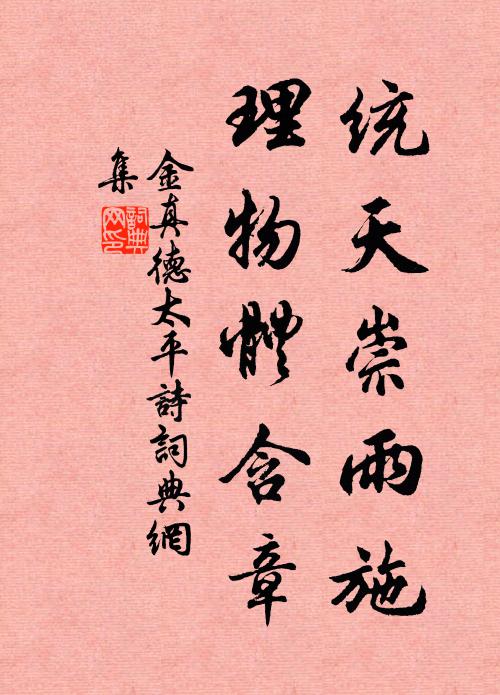 統天崇雨施
理物體含章
金真德太平詩詞典網
集
詞典
網印